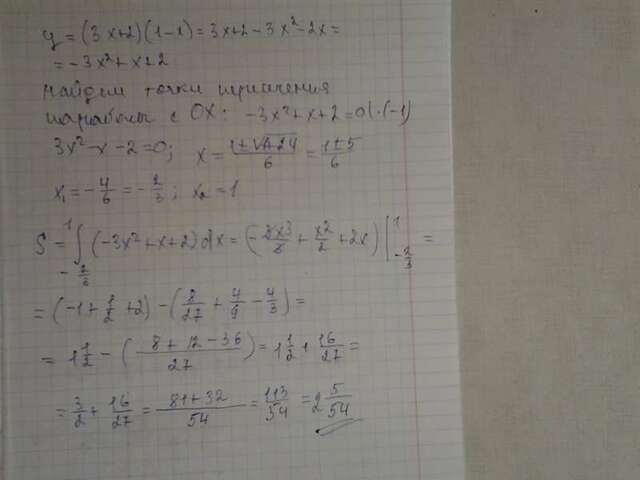 y = (3x+2)(1-x) = 3x+2-3x²-2x =
= -3x²+x+2
Найдем точки пересечения
параболы с OX: -3x²+x+2=0 | ·(-1)
3x²-x-2=0; x = (1±√(1+24))/6 = (1±5)/6
x₁ = -4/6 = -2/3; x₂ = 1
S = ∫_{-2/3}^{1} (-3x²+x+2)dx = (-3x³/3 + x²/2 + 2x) |_{-2/3}^{1} =
= (-1 + 1/2 + 2) - (8/27 + 4/9 - 4/3) =
= 1 1/2 - ((8+12-36)/27) = 1 1/2 + 16/27 =
= 3/2 + 16/27 = (81+32)/54 = 113/54 = 2 5/54